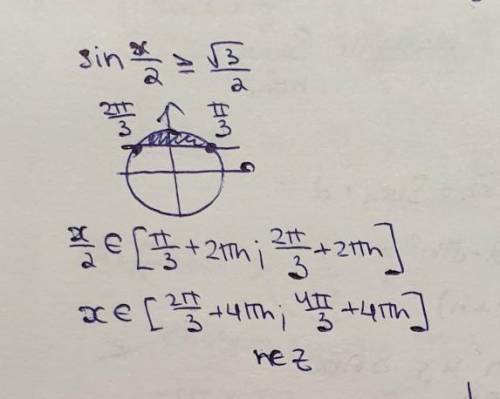 sin x/2 ≥ √3/2
2π/3 π/3
x/2 ∈ [π/3 + 2πn; 2π/3 + 2πn]
x ∈ [2π/3 + 4πn; 4π/3 + 4πn]
n∈Z